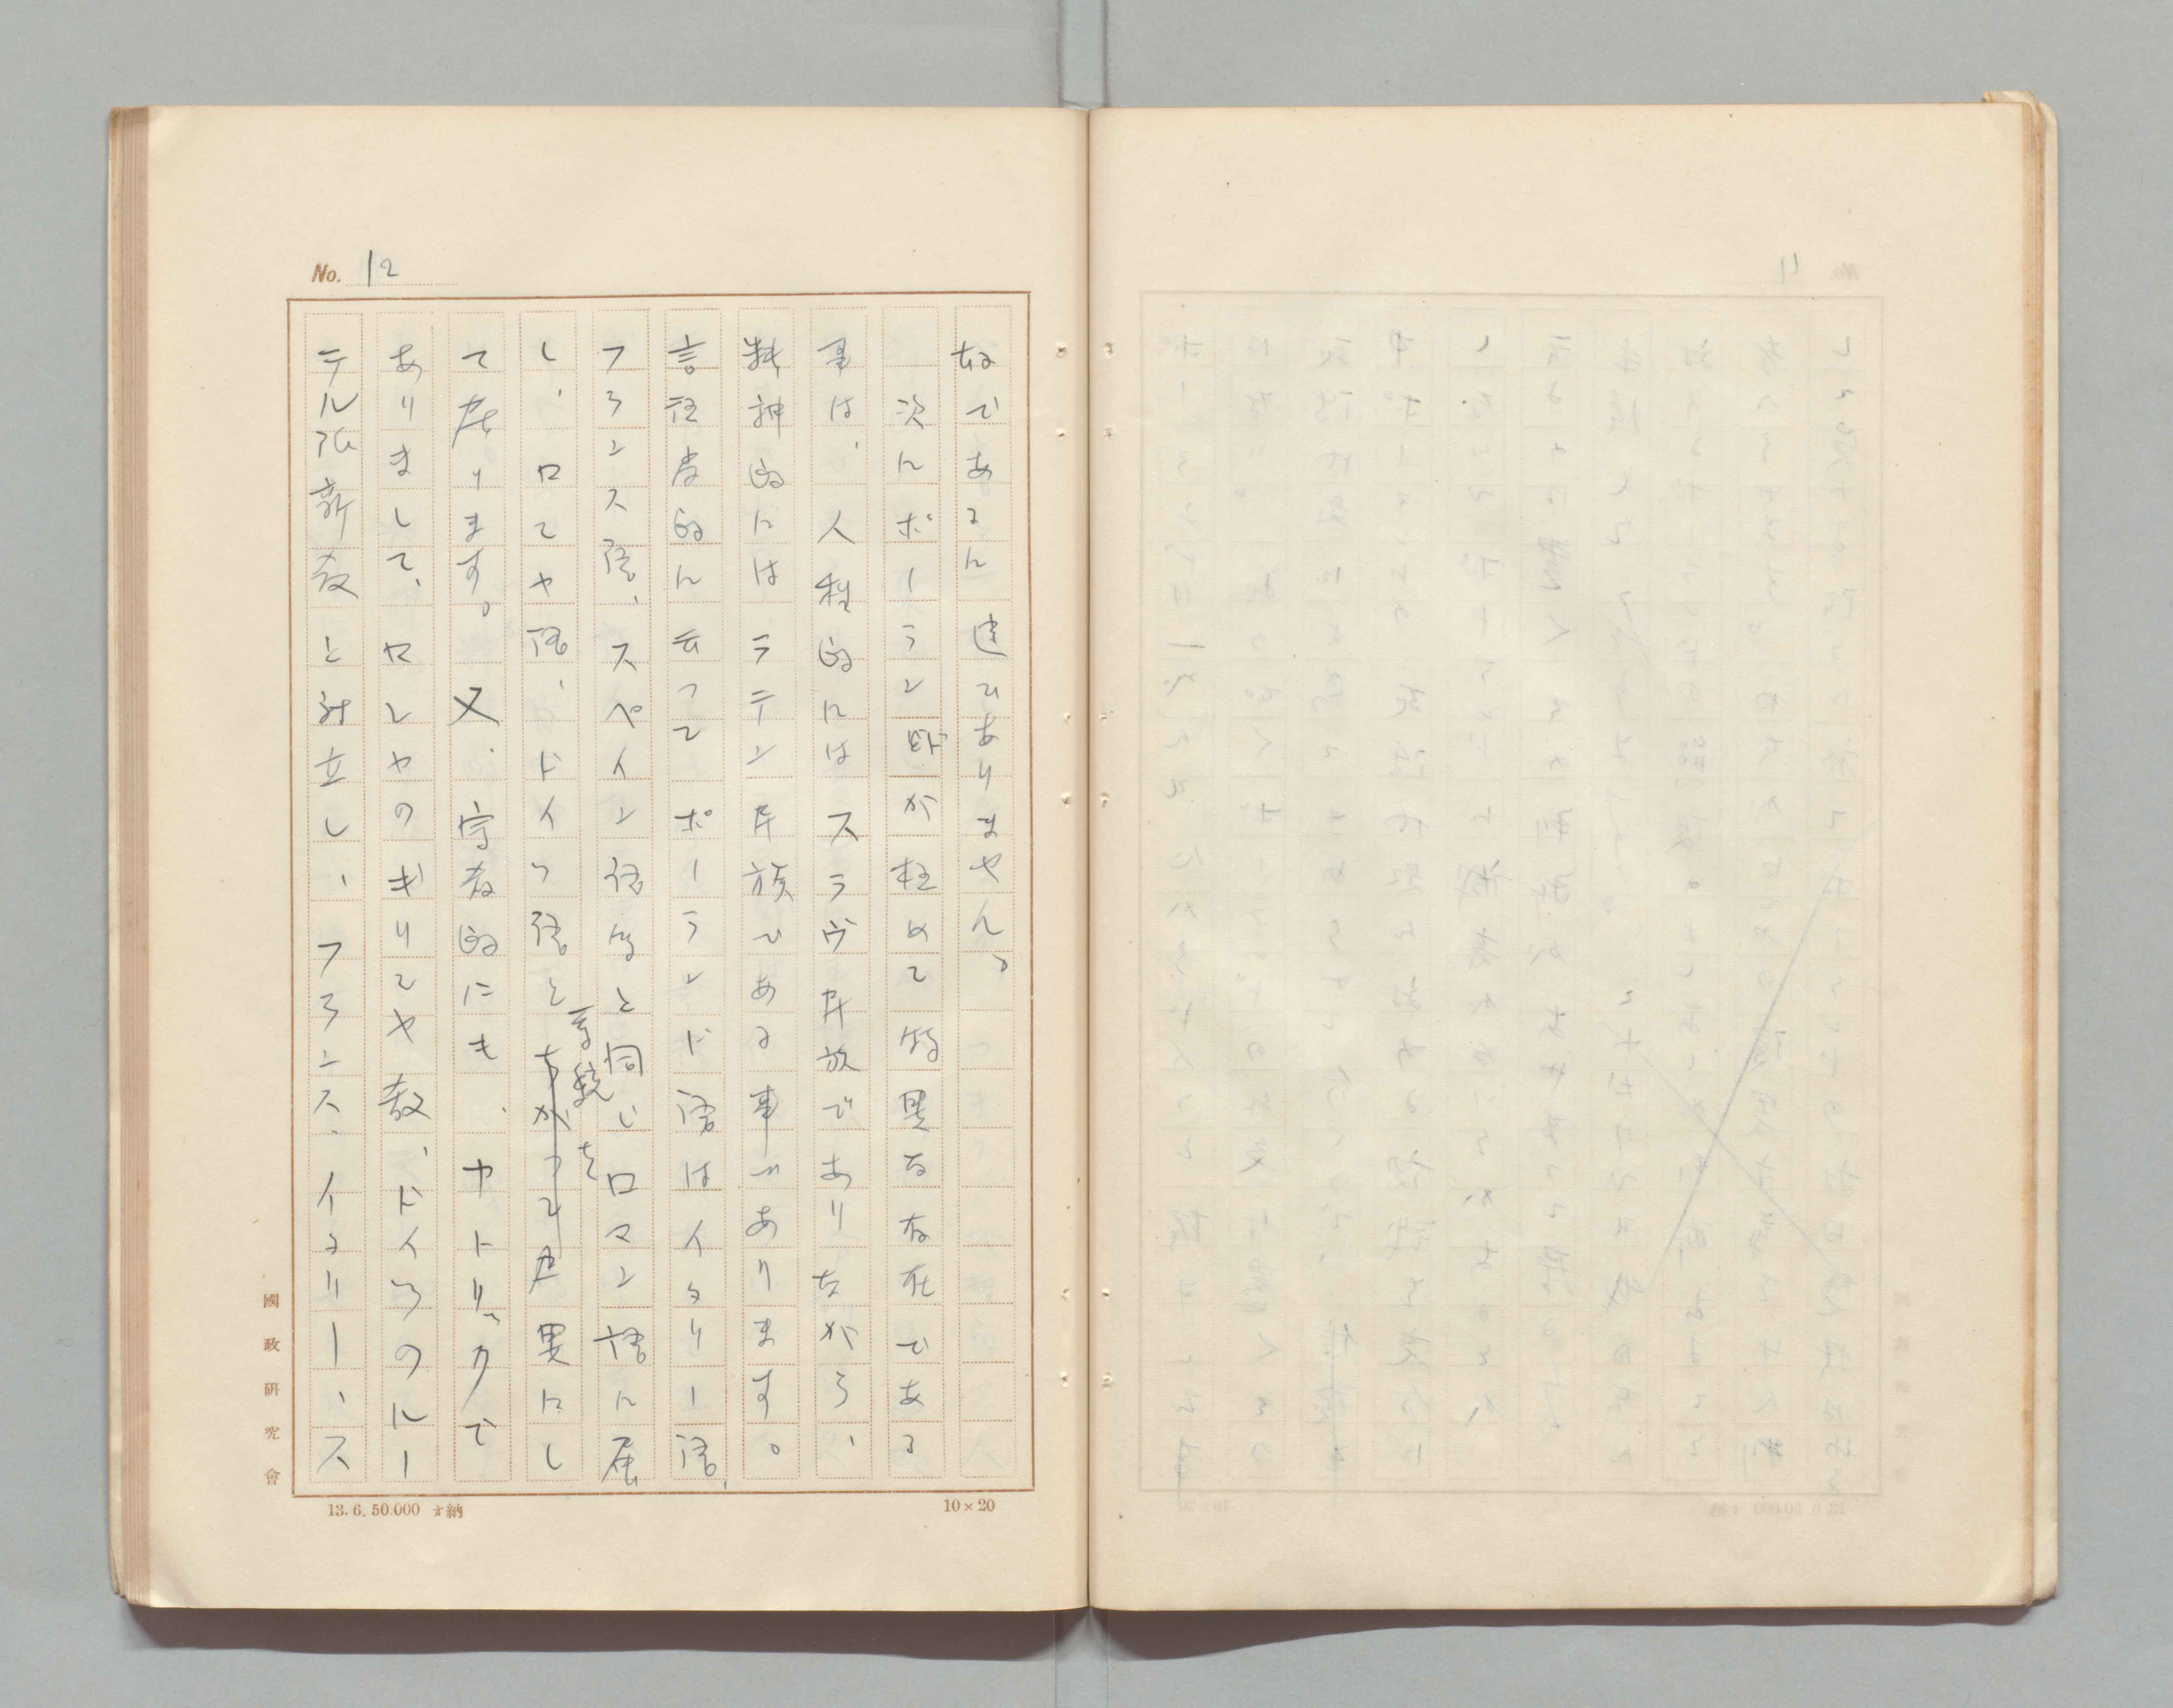 No. 12
であるに違ひありません。
次にポーランドが極めて特異な存在である
事は、人種的にはスラヴ民族でありながら、
精神的にはラテン民族である事であります。
言語学的に云つてポーランド語はイタリー語、
フランス語、スペイン語等と同じロマン語に属
し、ロシヤ語、ドイツ語と系統を異にし
て居ります。又、宗教的にも、カトリックで
ありまして、ロシヤのギリシヤ教、ドイツのルー
テル派新教と対立し、フランス、イタリー、ス
國政研究會
10×20
13.6.50.000 納